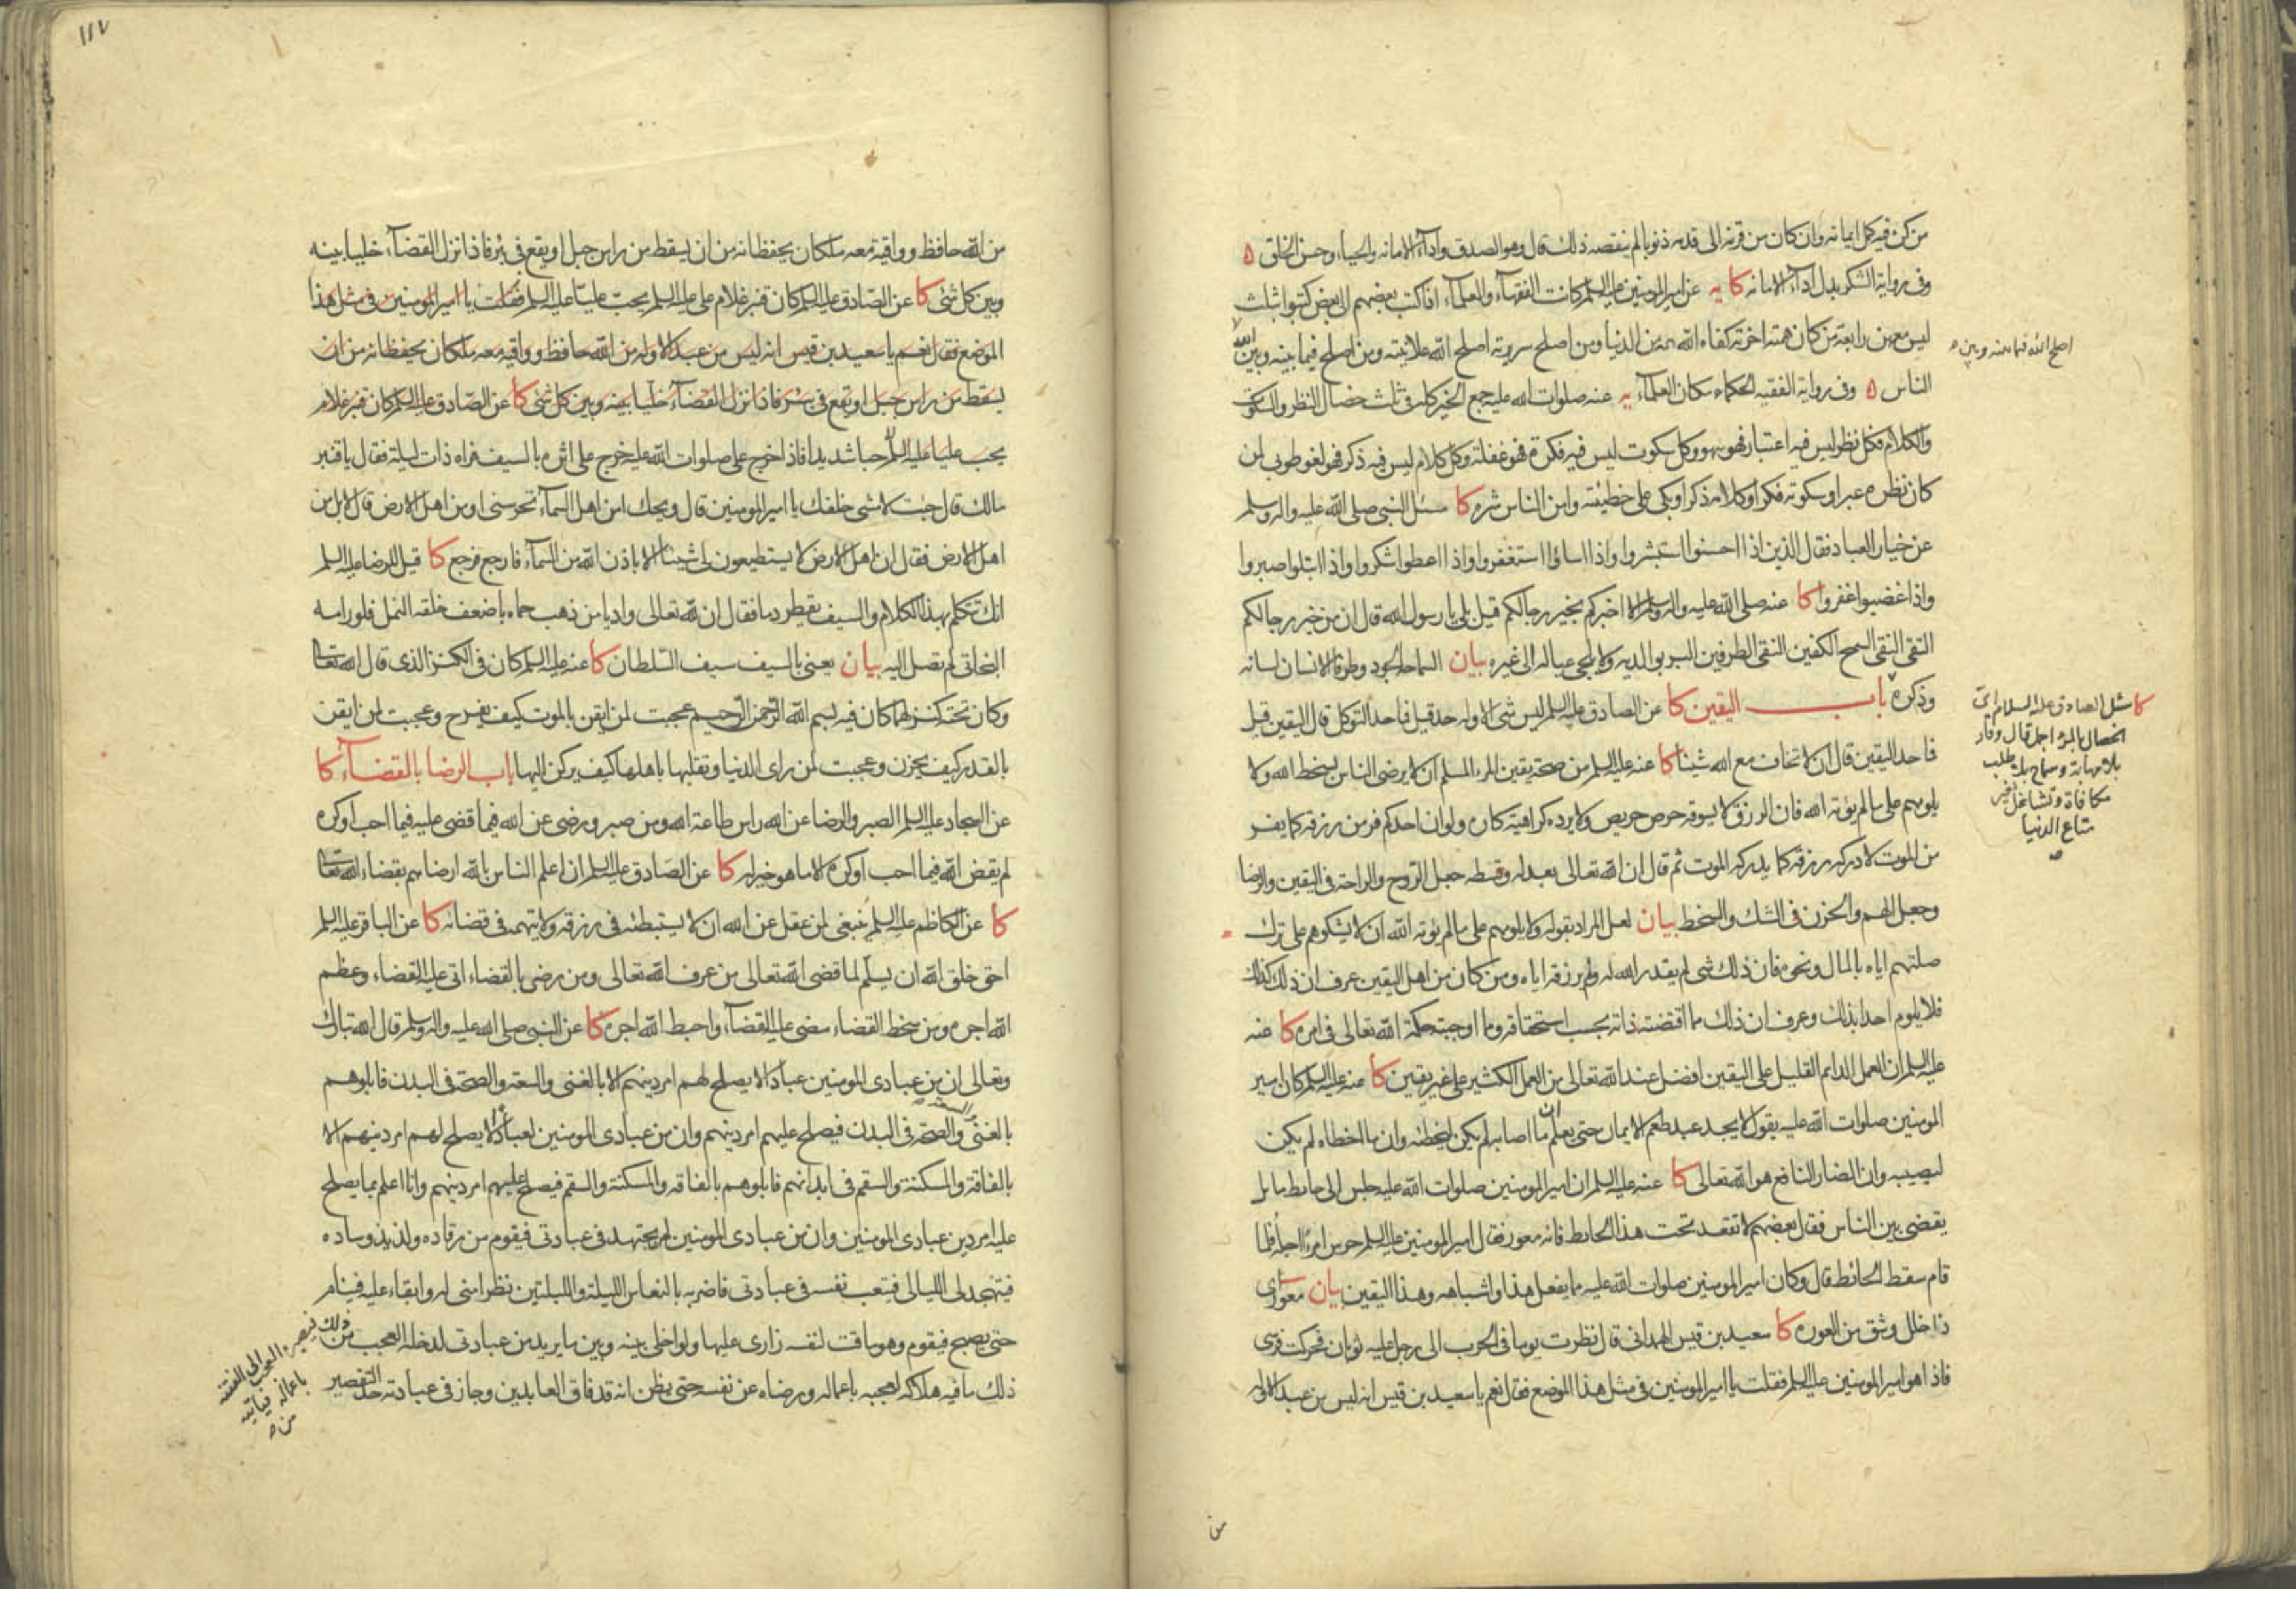 من كن فيه كمل ايمانه وان كان من قرنه الى قدمه ذنوبا لم ينقصه ذلك قال وهو الصدق واداء الامانه والحياء وحسن الخلق ه
وفى رواية الشكر بدل اداء الامانه كا يه عن امير المومنين عليه السلم كانت الفقهاء والعلماء اذا كتب بعضهم الى بعض كتبوا بثلث
ليس معهن رابعة من كان همته اخرته كفاه الله همه من الدنيا ومن اصلح سريرته اصلح الله علانيته ومن اصلح فيما بينه وبين الله
اصلح الله فيما بينه وبين
الناس ه وفى رواية الفقيه الحكماء مكان العلماء يه عنه صلوات الله عليه جمع الخير كله فى ثلث خصال النظر والسكوت
والكلام فكل نظر ليس فيه اعتبار فهو سهو وكل سكوت ليس فيه فكرة فهو غفلة وكل كلام ليس فيه ذكر فهو لغو طوبى لمن
كان نظره عبرا وسكوته فكرا وكلامه ذكرا وبكى على خطيئته وامن الناس شره كا سئل النبى صلى الله عليه واله وسلم
عن خيار العباد فقال الذين اذا احسنوا استبشروا واذا اساؤا استغفروا واذا اعطوا شكروا واذا ابتلوا صبروا
واذا غضبوا غفروا كا عنه صلى الله عليه واله وسلم الا اخبركم بخير رجالكم قيل بلى يا رسول الله قال ان من خير رجالكم
التقى النقى السمح الكفين النقى الطرفين البر بوالديه ولا يلجى عياله الى غيره بيان السماحة الجود وطرفا الانسان لسانه
وذكره باب اليقين كا عن الصادق عليه السلم ليس شى الا وله حد قيل فما حد التوكل قال اليقين قيل
كا سئل الصادق عليه السلام اى
الخصال بالمرء اجمل قال وقار
بلا مهابة وسماح بلا طلب
مكافاة وتشاغل بغير
متاع الدنيا
فما حد اليقين قال ان لا تخاف مع الله شيئا كا عنه عليه السلم من صحة يقين المرء المسلم ان لا يرضى الناس بسخط الله ولا
يلومهم على ما لم يؤته الله فان الرزق لا يسوقه حرص حريص ولا يرده كراهية كاره ولو ان احدكم فر من رزقه كما يفر
من الموت لادركه رزقه كما يدركه الموت ثم قال ان الله تعالى بعدله وقسطه جعل الروح والراحة فى اليقين والرضا
وجعل الهم والحزن فى الشك والسخط بيان لعل المراد بقوله ولا يلومهم على ما لم يؤته الله ان لا يشكوهم على ترك
صلتهم اياه بالمال ونحوه فان ذلك شى لم يقدر الله له ولم يرزقه اياه ومن كان من اهل اليقين عرف ان ذلك كذلك
فلا يلوم احدا بذلك وعرف ان ذلك مما اقتضته ذاته بحسب استحقاقه ومما اوجبته حكمة الله تعالى فى امره كا عنه
عليه السلم ان العمل الدايم القليل على اليقين افضل عند الله تعالى من العمل الكثير على غير يقين كا عنه عليه السلم كان امير
المومنين صلوات الله عليه يقول لا يجد عبد طعم الايمان حتى يعلم ان ما اصابه لم يكن ليخطئه وان ما اخطاه لم يكن
ليصيبه وان الضار النافع هو الله تعالى كا عنه عليه السلم ان امير المومنين صلوات الله عليه جلس الى حايط مايل
يقضى بين الناس فقال بعضهم لا تقعد تحت هذا الحايط فانه معور فقال امير المومنين عليه السلم حرس امرءا اجله فلما
قام سقط الحائط قال وكان امير المومنين صلوات الله عليه مما يفعل هذا واشباهه وهذا اليقين بيان معور اى
ذا خلل وشق من العوره كا سعيد بن قيس الهمدانى قال نظرت يوما فى الحرب الى رجل عليه ثوبان فحركت فرسى
فاذا هو امير المومنين عليه السلم فقلت يا امير المومنين فى مثل هذا الموضع فقال نعم يا سعيد بن قيس انه ليس من عبد الا وله
من
١١٧
من الله حافظ وواقية معه ملكان يحفظانه من ان يسقط من راس جبل او يقع فى بئر فاذا نزل القضاء خليا بينه
وبين كل شئ كا عن الصادق عليه السلم كان قنبر غلام على عليه السلم يحب عليا عليه السلم فقلت يا امير المومنين فى مثل هذا
الموضع فقال نعم يا سعيد بن قيس انه ليس من عبد الا وله من الله حافظ وواقيه معه ملكان يحفظانه من ان
يسقط من راس جبل او يقع فى بئر فاذا نزل القضاء خليا بينه وبين كل شئ كا عن الصادق عليه السلم كان قنبر غلام
يحب عليا عليه السلم حبا شديدا فاذا خرج على صلوات الله عليه خرج على اثره بالسيف فراه ذات ليلة فقال يا قنبر
مالك قال جئت لامشى خلفك يا امير المومنين قال ويحك امن اهل السماء تحرسنى او من اهل الارض قال لا بل من
اهل الارض فقال ان اهل الارض لا يستطيعون لى شيئا الا باذن الله من السماء فارجع فرجع كا قيل للرضا عليه السلم
انك تتكلم بهذا الكلام والسيف يقطر دما فقال ان لله تعالى واديا من ذهب حماه باضعف خلقه النمل فلو رامه
البخاتى لم تصل اليه بيان يعنى بالسيف سيف السلطان كا عنه عليه السلم كان فى الكنز الذى قال الله تعالى
وكان تحته كنز لهما كان فيه بسم الله الرحمن الرحيم عجبت لمن ايقن بالموت كيف يفرح وعجبت لمن ايقن
بالقدر كيف يحزن وعجبت لمن راى الدنيا وتقلبها باهلها كيف يركن اليها باب الرضا بالقضاء كا
عن السجاد عليه السلم الصبر والرضا عن الله راس طاعة الله ومن صبر ورضى عن الله فيما قضى عليه فيما احب او كره
لم يقض الله فيما احب او كره الا ما هو خير له كا عن الصادق عليه السلم ان اعلم الناس بالله ارضاهم بقضاء الله تعالى
كا عن الكاظم عليه السلم ينبغى لمن عقل عن الله ان لا يستبطئه فى رزقه ولا يتهمه فى قضائه كا عن الباقر عليه السلم
احق خلق الله ان يسلم لما قضى الله تعالى من عرف الله تعالى ومن رضى بالقضاء اتى عليه القضاء وعظم
الله اجره ومن سخط القضاء مضى عليه القضاء واحبط الله اجره كا عن النبى صلى الله عليه واله وسلم قال الله تبارك
وتعالى ان من عبادى المومنين عبادا لا يصلح لهم امر دينهم الا بالغنى والسعة والصحة فى البدن فابلوهم
بالغنى والسعة والصحة فى البدن فيصلح عليهم امر دينهم وان من عبادى المومنين لعبادا لا يصلح لهم امر دينهم الا
بالفاقة والمسكنة والسقم فى ابدانهم فابلوهم بالفاقه والمسكنة والسقم فيصلح عليهم امر دينهم وانا اعلم بما يصلح
عليه امر دين عبادى المومنين وان من عبادى المومنين لمن يجتهد فى عبادتى فيقوم من رقاده ولذيذ وساده
فيتهجد لى الليالى فيتعب نفسه فى عبادتى فاضربه بالنعاس الليلة والليلتين نظرا منى له وابقاء عليه فينام
حتى يصبح فيقوم وهو ماقت لنفسه زارى عليها ولو اخلى بينه وبين ما يريد من عبادتى لدخله العجب من ذلك
فيصيره العجب الى الفتنة
باعماله فياتيه
من
ذلك ما فيه هلاكه لعجبه باعماله ورضاه عن نفسه حتى يظن انه قد فاق العابدين وجاز فى عبادته حد التقصير